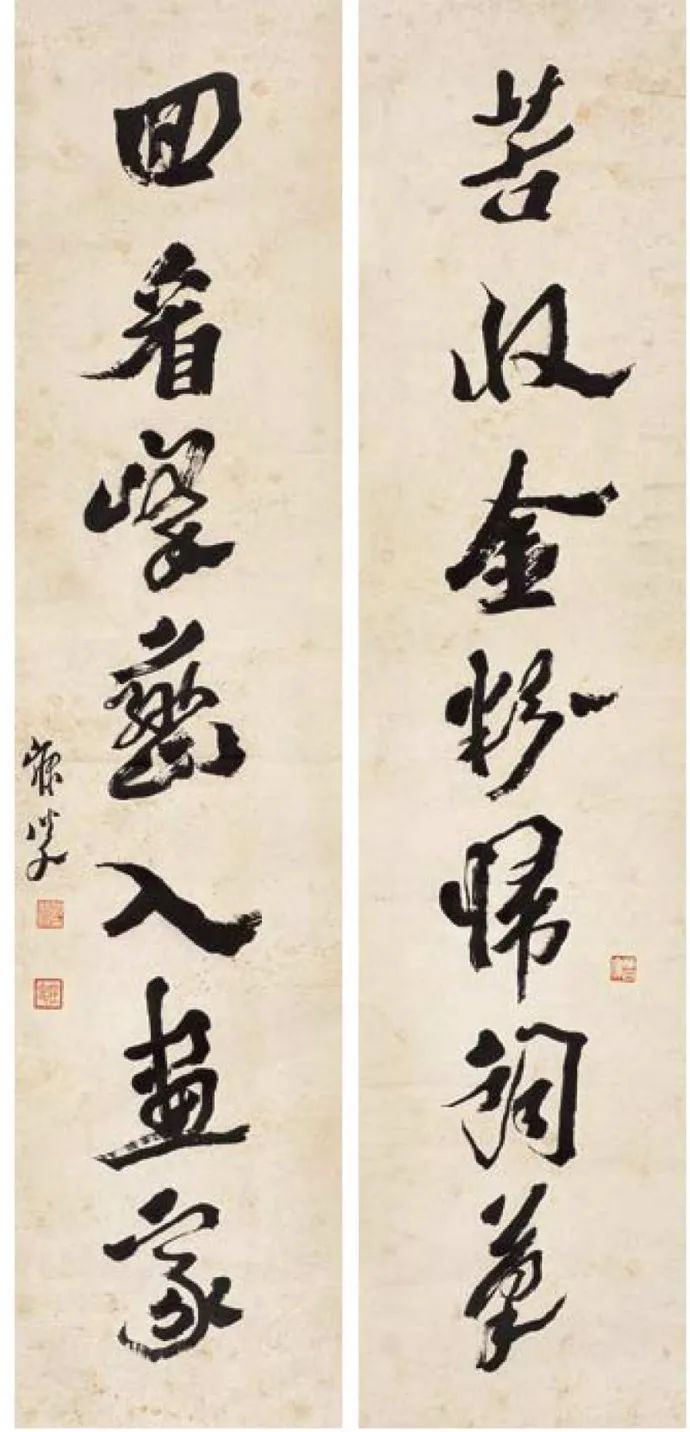 苦收金粉歸詞藁
回看峰巒入畫家
寐叟